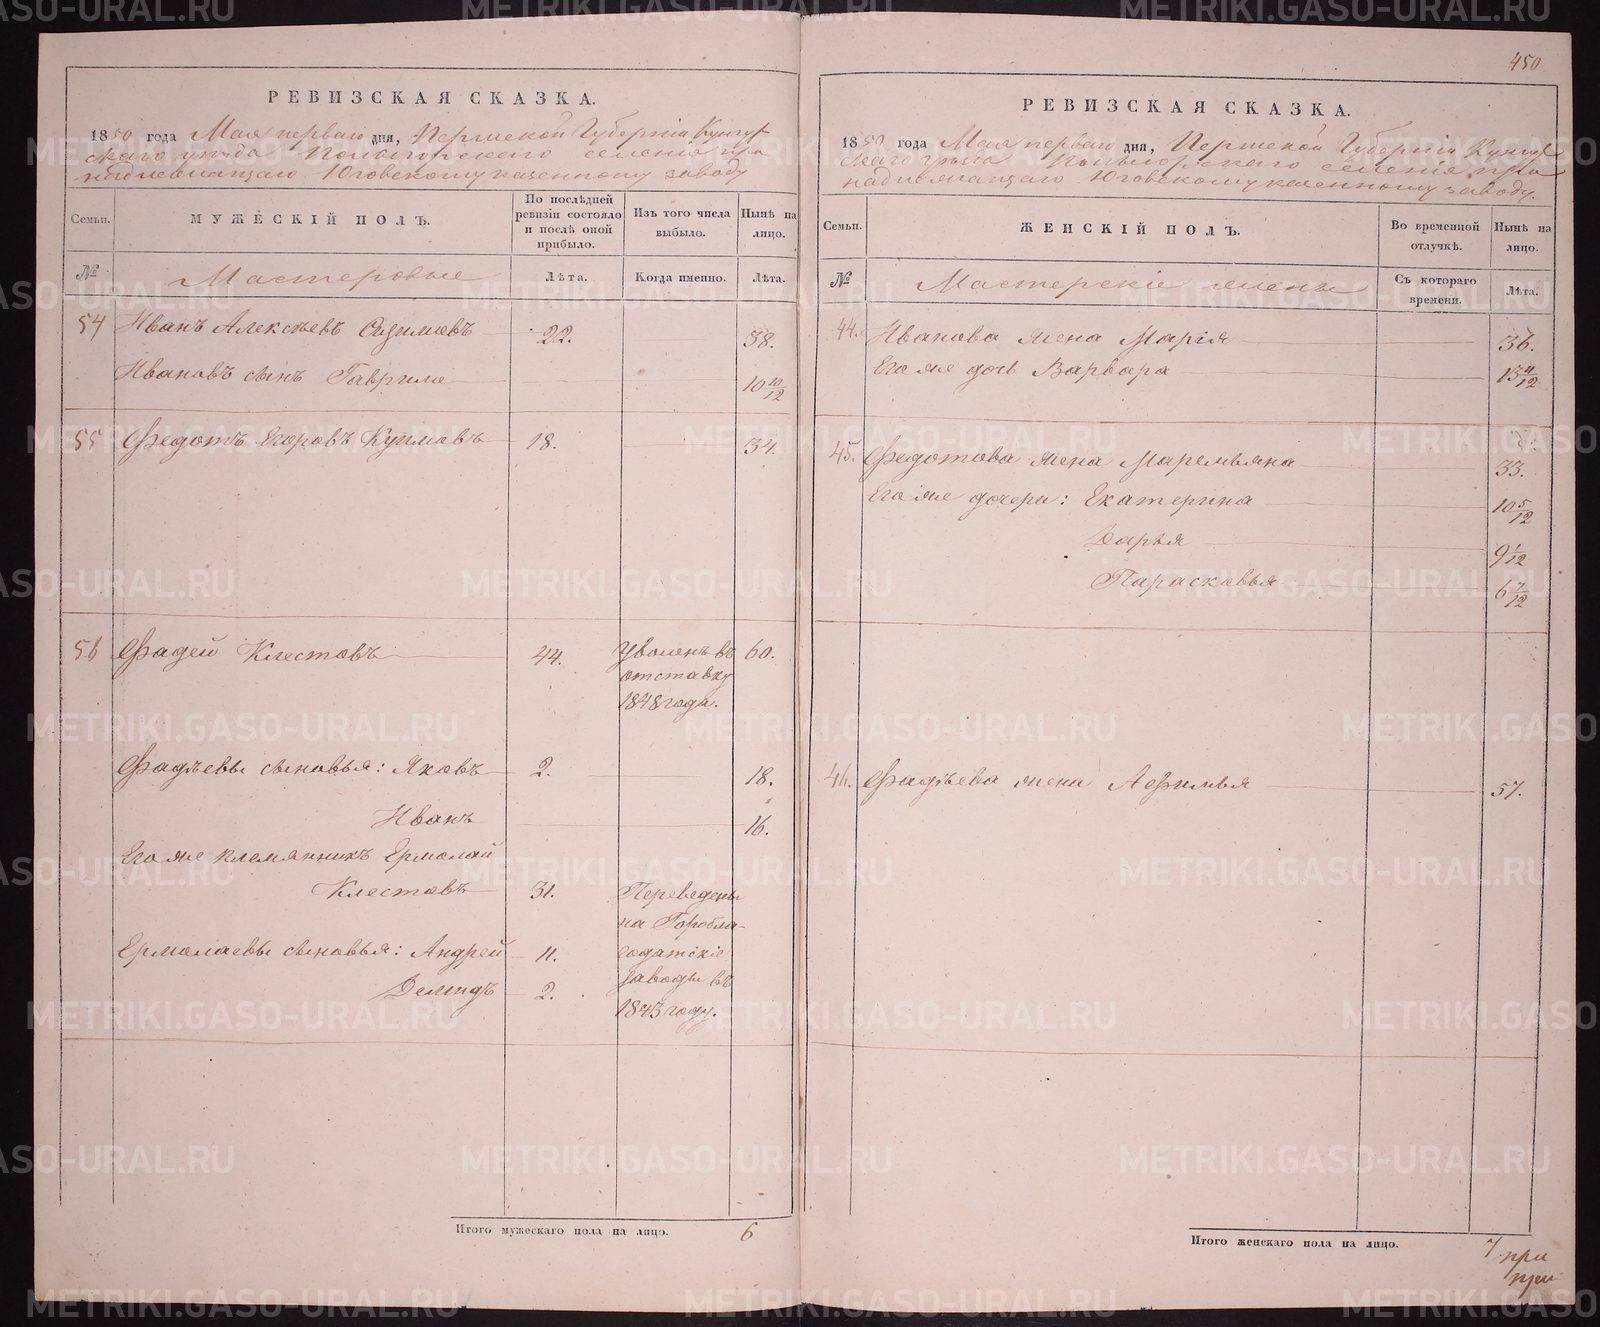 450
РЕВИЗСКАЯ СКАЗКА.
1850 года Мая перваго дня, Пермской Губерніи Кунгур-
скаго уѣзда селенія при
надлежащаго Юговскому казенному заводу
Семьи.
МУЖЕСКІЙ ПОЛЪ.
По послѣдней ревизіи состояло и послѣ оной прибыло.
Изъ того числа выбыло.
Нынѣ на лицо.
№
Мастеровые
Лѣта.
Когда именно.
Лѣта.
54 Иванъ Алексѣевъ 22. 38.
Ивановъ сынъ Гаврило 10 10/12
55 Федотъ Егоровъ 18. 34.
56 Фадей Клестовъ 44. Уволенъ въ 60.
отставку
1848 года.
Фадѣевы сыновья: Яковъ 2. 18.
Иванъ 16.
Его же племянникъ Ермолай
Клестовъ 31. Переведены
на Горобла-
Ермолаевы сыновья: Андрей 11. годатскіе
Демидъ 2. заводы въ
1843 году.
Итого мужескаго пола на лицо. 6
РЕВИЗСКАЯ СКАЗКА.
1850 года Мая перваго дня, Пермской Губерніи Кунгур
скаго уѣзда селенія при
надлежащаго Юговскому казенному заводу.
Семьи.
ЖЕНСКІЙ ПОЛЪ.
Во временной отлучкѣ.
Нынѣ на лицо.
№
Мастерскіе жены
Съ котораго времени.
Лѣта.
44. Иванова жена Марія 36.
Его же дочь Варвара 13 4/12
45. Федотова жена Маремьяна 33.
Его же дочери: Екатерина 10 5/12
Дарья 9 1/12
Парасковья 6 7/12
46. Фадѣева жена Афимья 57.
Итого женскаго пола на лицо. 7
при
METRIKI.GASO-URAL.RU